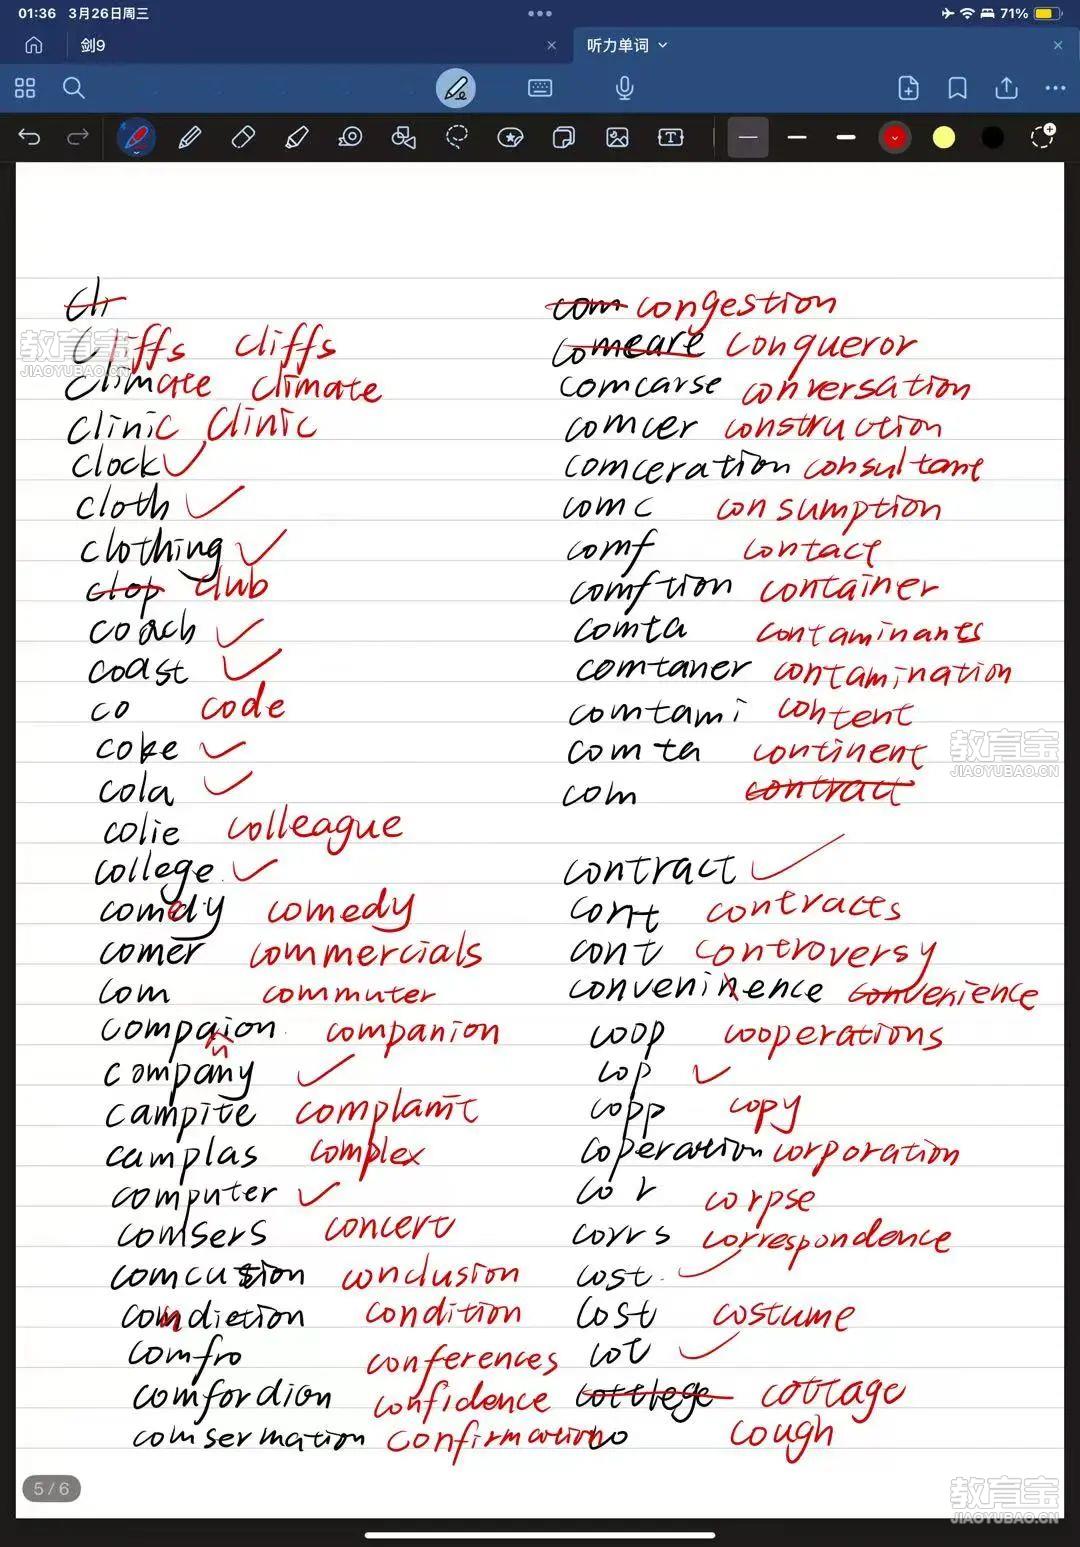 01:36 3月26日周三
71%
剑9
听力单词
Cliffs cliffs
climate climate
clinic clinic
clock
cloth
clothing
clop club
coach
coast
co code
coke
cola
colie colleague
college
comedy comedy
comer commercials
com commuter
compaion companion
n
company
campite complamt
camplas complex
computer
comsers concert
comcution conclusion
comndietion condition
comfro conferences
comfordion confidence
comsermation confirmation
com congestion
comeare conqueror
comcarse conversation
comcer construction
comceration consultane
comc consumption
comf contact
comftion container
comta contaminants
comtaner contamination
comtami content
comta continent
com contract
contract
cont contracts
cont controversy
conveninence convenience
coop cooperations
cop
copp copy
coperation corporation
cor corpse
corrs correspondence
cost
cost costume
cot
cottlege cottage
co cough
5 / 6
教育宝
JIAOYUBAO.CN
教育宝
JIAOYUBAO.CN
教育宝
JIAOYUBAO.CN